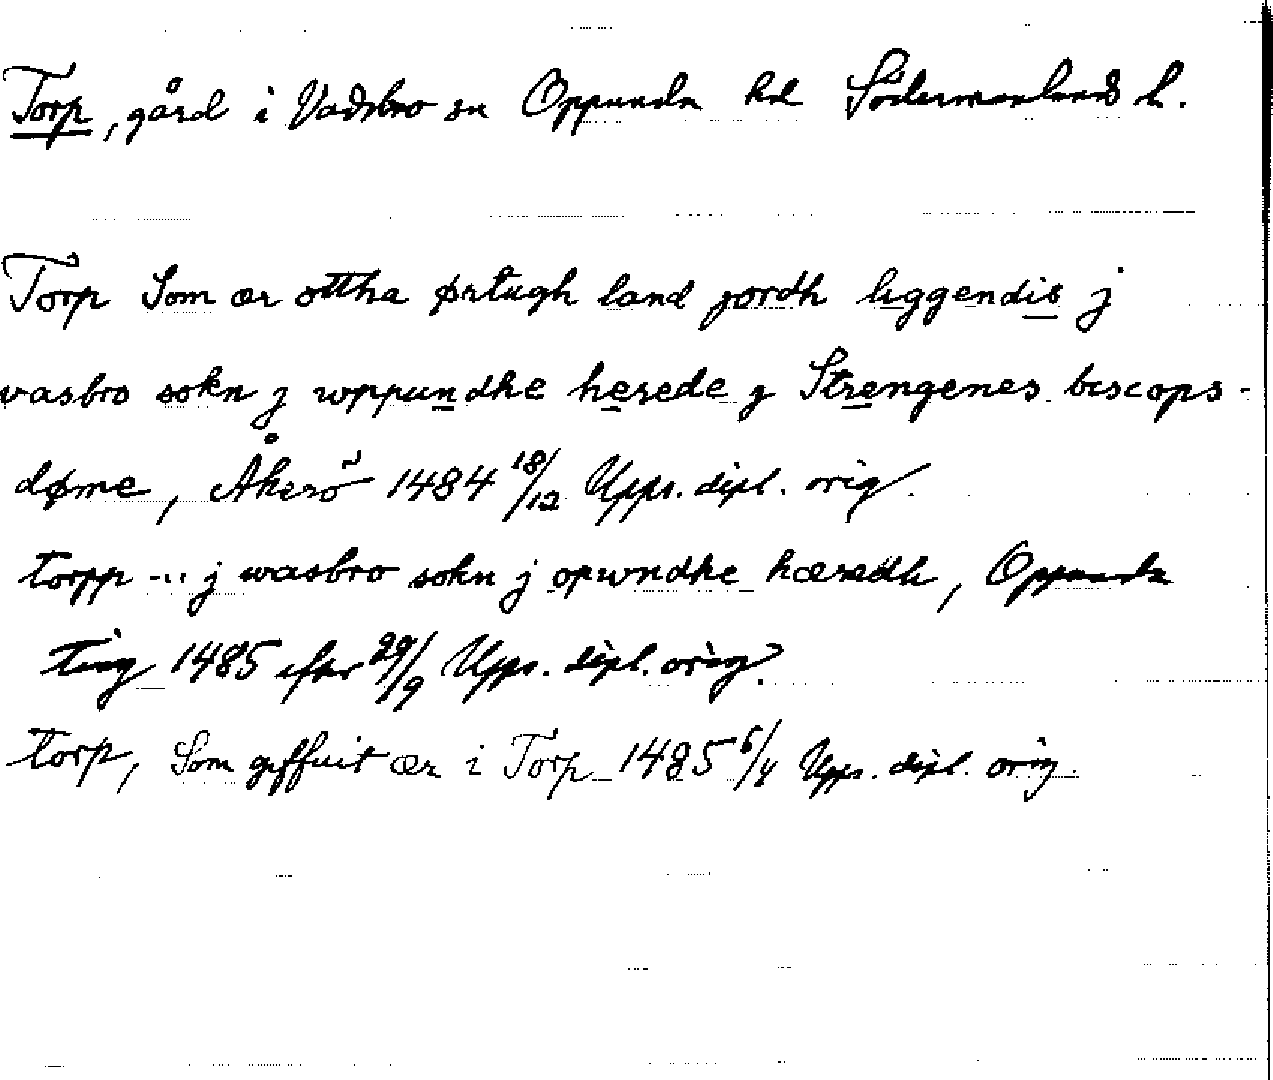 Torp, gård i Vadsbro sn Oppunda hd Södermanlands l.
Torp Som ær ottha ørtugh land jordh liggendis j
wasbro sokn j wppundhe herede j Strengenes biscops-
døme, Åkerö 1484 18/12 Upps. dipl. orig.
torpp ... j wasbro sokn j opwndhe hæredh, Oppunda
ting 1485 efter 29/9 Upps. dipl. orig.
torp, Som giffuit ær i Torp 1485 5/4 Upps. dipl. orig.